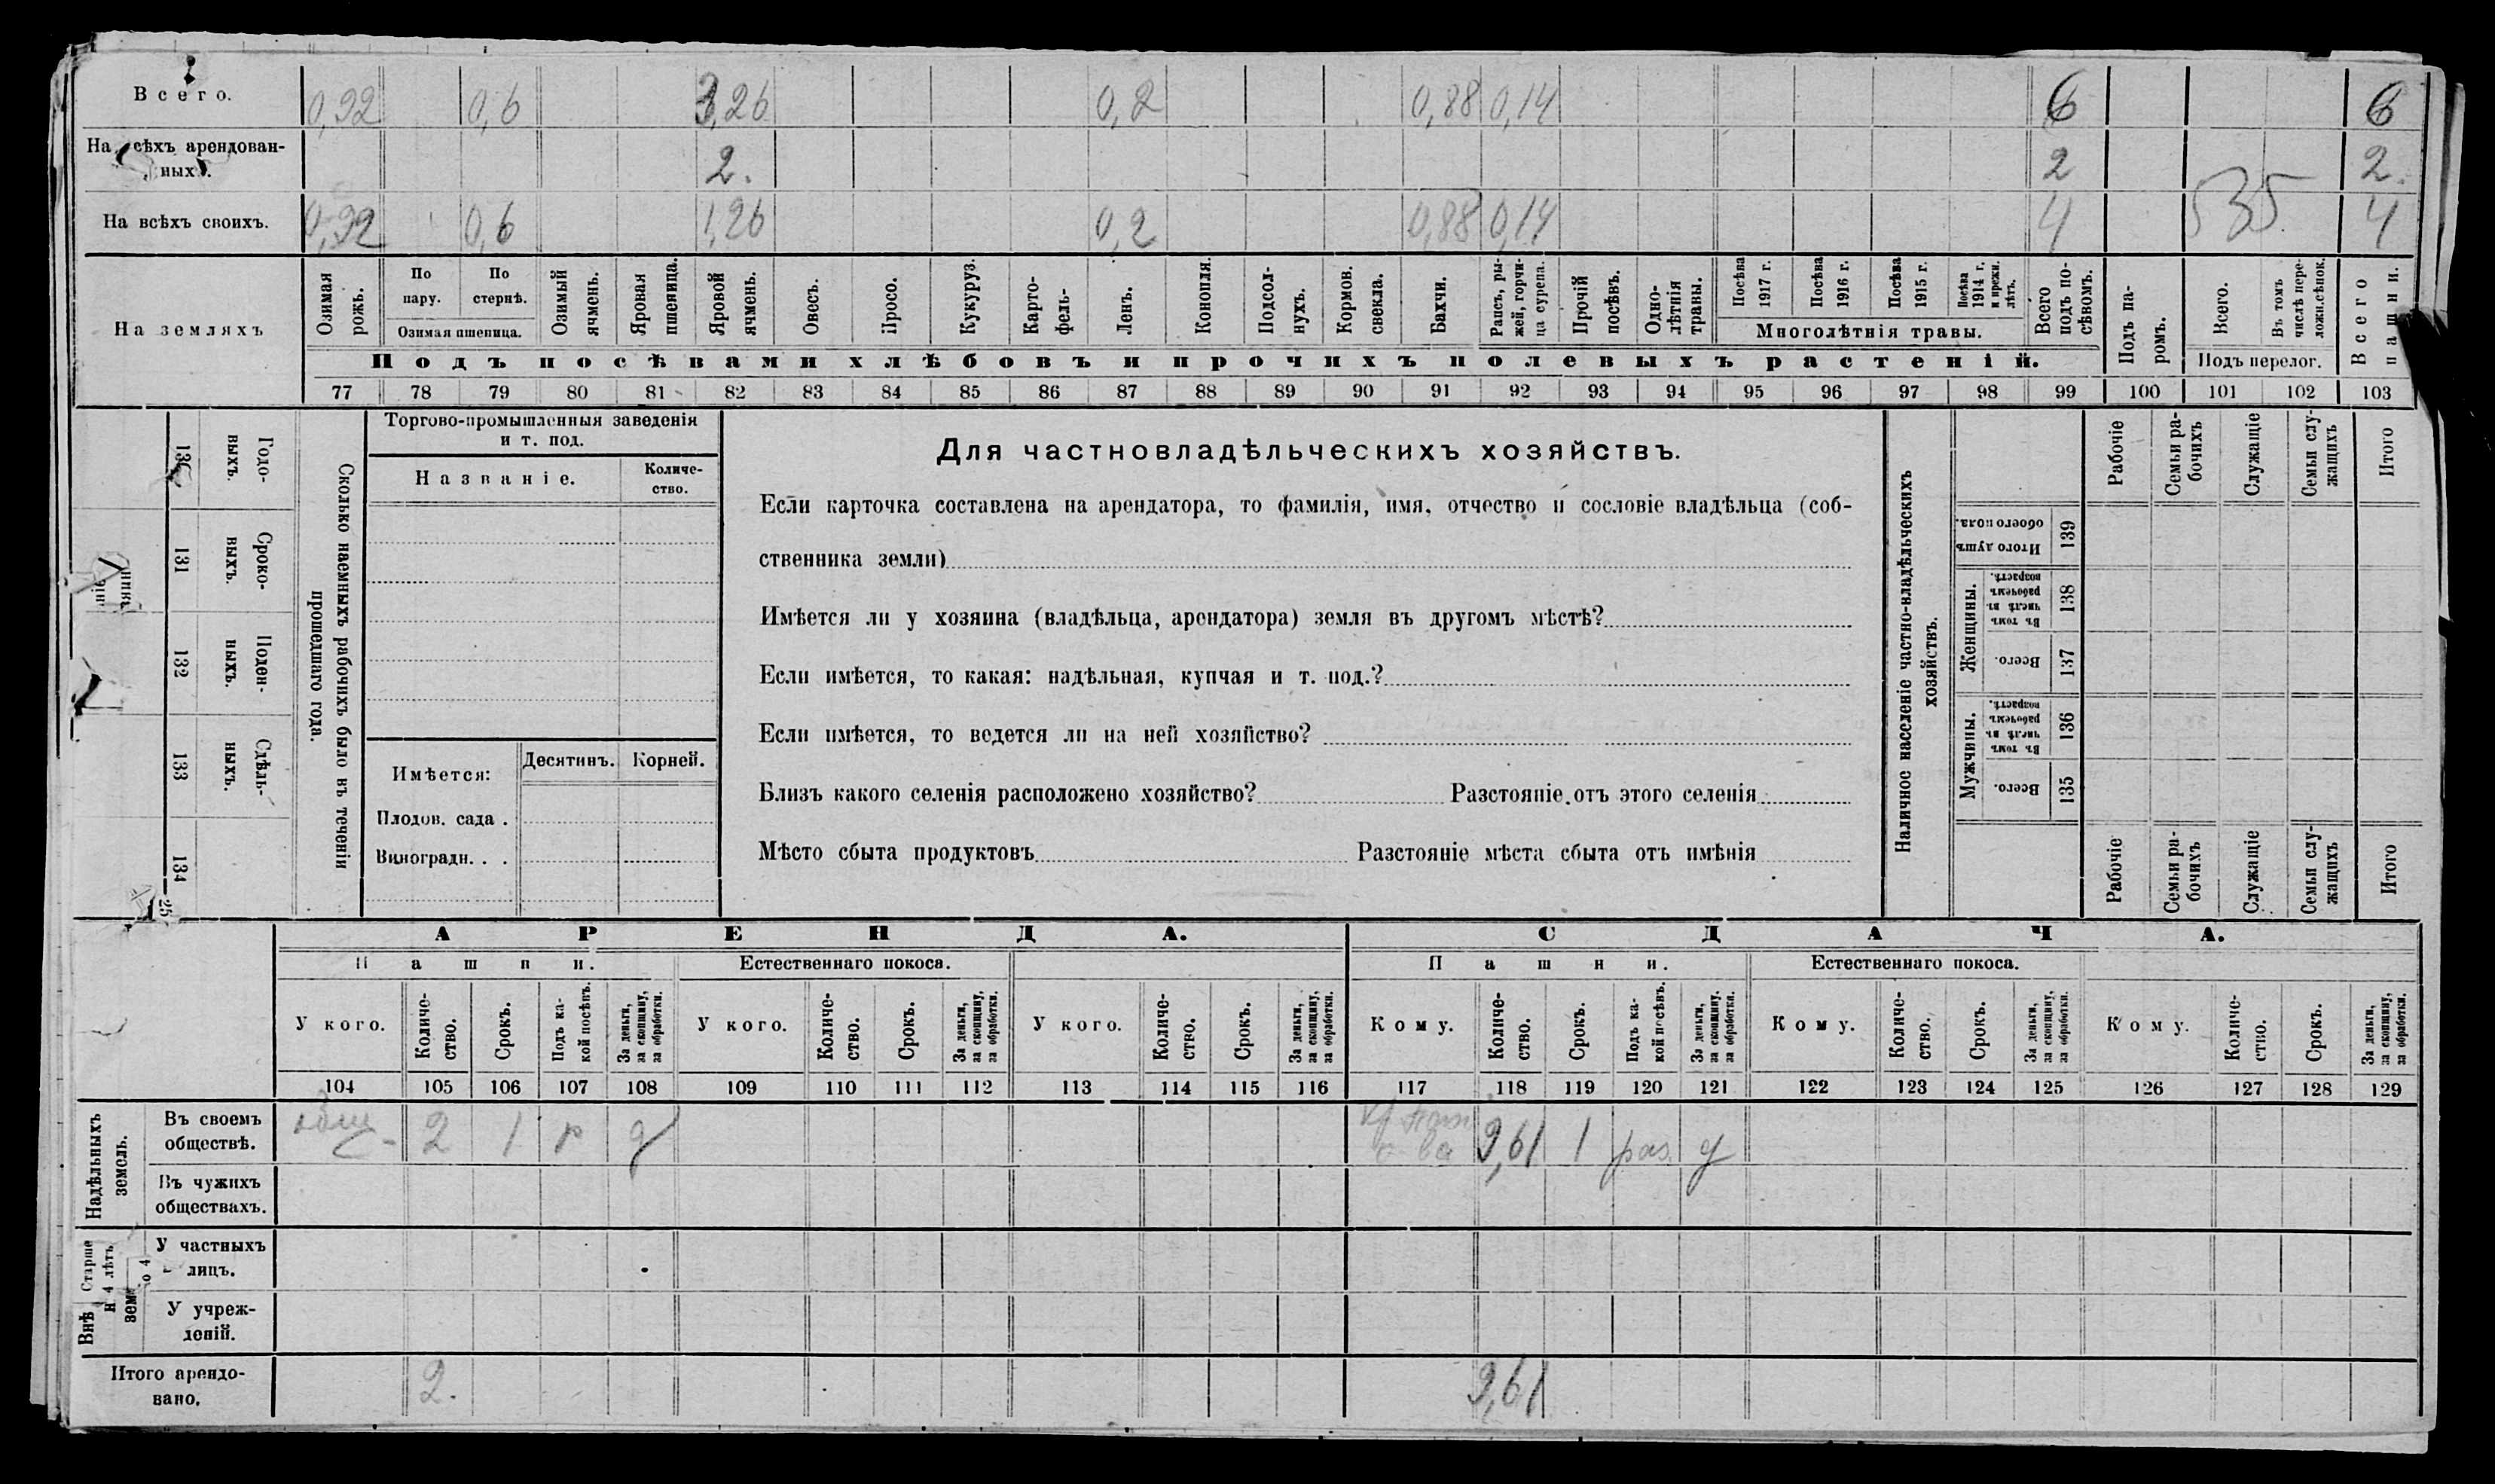 Всего. 0,92 0,6 3,26 0,2 0,88 0,14 6 6
На всѣхъ арендован-
ныхъ. 2. 2 2.
535
На всѣхъ своихъ. 0,92 0,6 1,26 0,2 0,88 0,14 4 4
На земляхъ
Озимая рожь.
По пару.
По стернѣ.
Озимая пшеница.
Озимый ячмень.
Яровая пшеница.
Яровой ячмень.
Овесъ.
Просо.
Кукуруз.
Карто-
фель.
Ленъ.
Конопля.
Подсол-
нухъ.
Кормов. свекла.
Бахчи.
Рапсъ, ры-
жей, горчи-
ца сурепа.
Прочій посѣвъ.
Одно-
лѣтнія травы.
Посѣва 1917 г.
Посѣва 1916 г.
Посѣва 1915 г.
Посѣва 1914 г. и прежн. лѣтъ.
Многолѣтнія травы.
Всего подъ по-
сѣвомъ.
Подъ па-
ромъ.
Всего.
Въ томъ числѣ пере-
ложн.сѣнок.
Подъ перелог.
Всего пашни.
Подъ посѣвами хлѣбовъ и прочихъ полевыхъ растеній.
77 78 79 80 81 82 83 84 85 86 87 88 89 90 91 92 93 94 95 96 97 98 99 100 101 102 103
Сколько наемныхъ рабочихъ было въ теченіи
прошедшаго года.
Годо-
выхъ.
130
Сроко-
выхъ.
131
Поден-
ныхъ.
132
Сдѣль-
ныхъ.
133
134
25
Торгово-промышленныя заведенія
и т. под.
Названіе.
Количе-
ство.
Имѣется:
Десятинъ.
Корней.
Плодов. сада .
Виноградн. . .
Для частновладѣльческихъ хозяйствъ.
Если карточка составлена на арендатора, то фамилія, имя, отчество и сословіе владѣльца (соб-
ственника земли)
Имѣется ли у хозяина (владѣльца, арендатора) земля въ другомъ мѣстѣ?
Если имѣется, то какая: надѣльная, купчая и т. под.?
Если имѣется, то ведется ли на ней хозяйство?
Близъ какого селенія расположено хозяйство? Разстояніе отъ этого селенія
Мѣсто сбыта продуктовъ Разстояніе мѣста сбыта отъ имѣнія
Наличное населеніе частно-владѣльческихъ
хозяйствъ.
Рабочіе
Семьи ра-
бочихъ
Служащіе
Семьи слу-
жащихъ
Итого
Итого душъ
обоего пола.
139
Женщины.
Въ томъ числѣ въ рабочемъ возрастѣ.
138
Всего.
137
Мужчины.
Въ томъ числѣ въ рабочемъ возрастѣ.
136
Всего.
135
Рабочіе
Семьи ра-
бочихъ
Служащіе
Семьи слу-
жащихъ
Итого
АРЕНДА. СДАЧА.
Пашни. Естественнаго покоса. Пашни. Естественнаго покоса.
У кого.
Количе-
ство.
Срокъ.
Подъ ка-
кой посѣвъ.
За деньги,
за скопщину,
за обработки.
У кого.
Количе-
ство.
Срокъ.
За деньги,
за скопщину,
за обработки.
У кого.
Количе-
ство.
Срокъ.
За деньги,
за скопщину,
за обработки.
Кому.
Количе-
ство.
Срокъ.
Подъ ка-
кой посѣвъ.
За деньги,
за скопщину.
за обработки.
Кому.
Количе-
ство.
Срокъ.
За деньги,
за скопщину,
за обработки.
Кому.
Количе-
ство.
Срокъ.
За деньги,
за скопщину,
за обработки.
104 105 106 107 108 109 110 111 112 113 114 115 116 117 118 119 120 121 122 123 124 125 126 127 128 129
Надѣльныхъ
земель.
Въ своемъ
обществѣ. 2 1 р д 9,61 1 раз. д
Въ чужихъ
обществахъ.
Старше
4 лѣтъ
Внѣ
зем
У частныхъ
лицъ.
У учреж-
деній.
Итого арендо-
вано. 2. 9,61